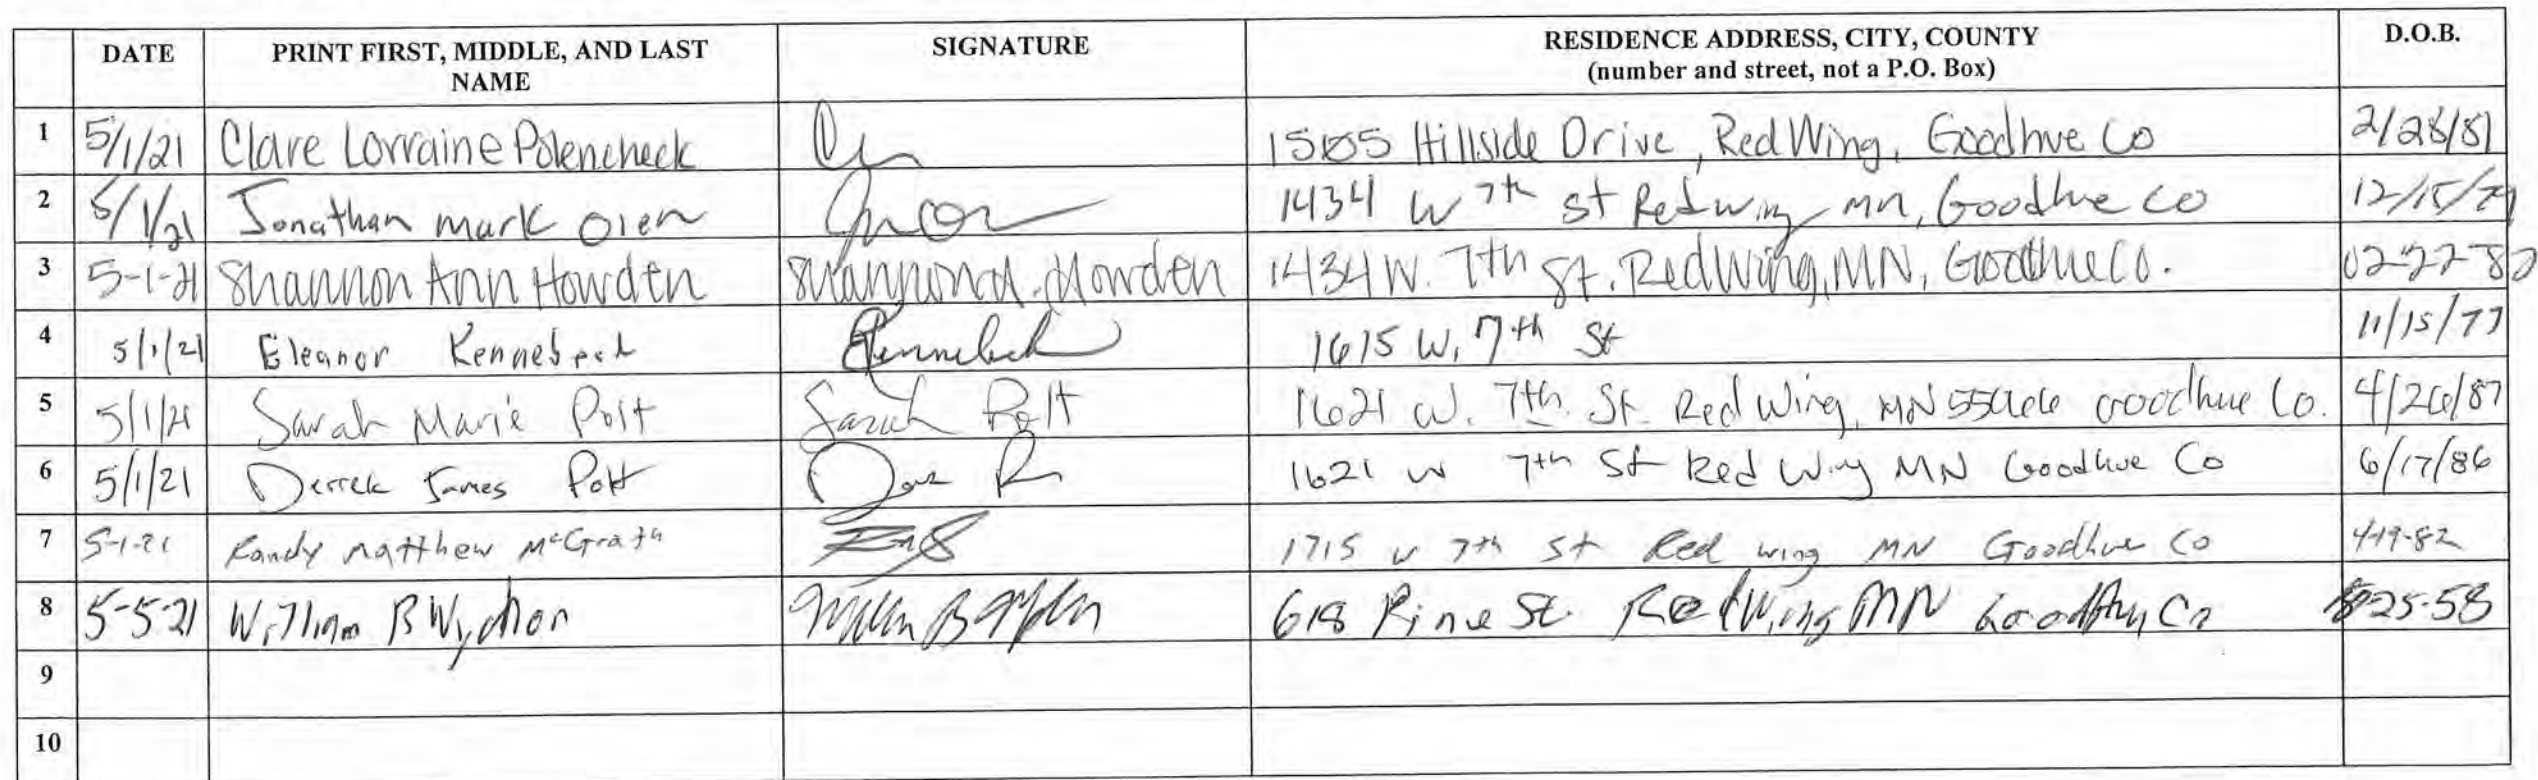 DATE PRINT FIRST, MIDDLE, AND LAST SIGNATURE RESIDENCE ADDRESS, CITY, COUNTY D.O.B.
NAME (number and street, not a P.O. Box)
1 5/1/21 Clare Lorraine Polencheck Hillside Drive, Red Wing, Goodhue Co 2/28/81
2 5/1/21 Jonathan mark Olen 1434 W 7th st Red wing mn, Goodhue co 12/15/79
3 5-1-21 Shannon Ann Howden Shannon A. Howden 1434 W. 7th St. Red Wing, MN, Goodhue Co. 02-22-82
4 5/1/21 Eleanor Kennebeck EKennebeck 1615 W. 7th St 11/15/77
5 5/1/21 Sarah Marie Pott Sarah Pott 1621 W. 7th St. Red Wing, MN 55066 Goodhue Co. 4/26/87
6 5/1/21 Derrek James Pott 1621 W 7th St Red Wing MN Goodhue Co 6/17/86
7 5-1-21 Randy Matthew McGrath 1715 W 7th St Red wing MN Goodhue Co 4-19-82
8 5-5-21 William B 618 Pine St. Red Wing MN Co 25-58
9
10